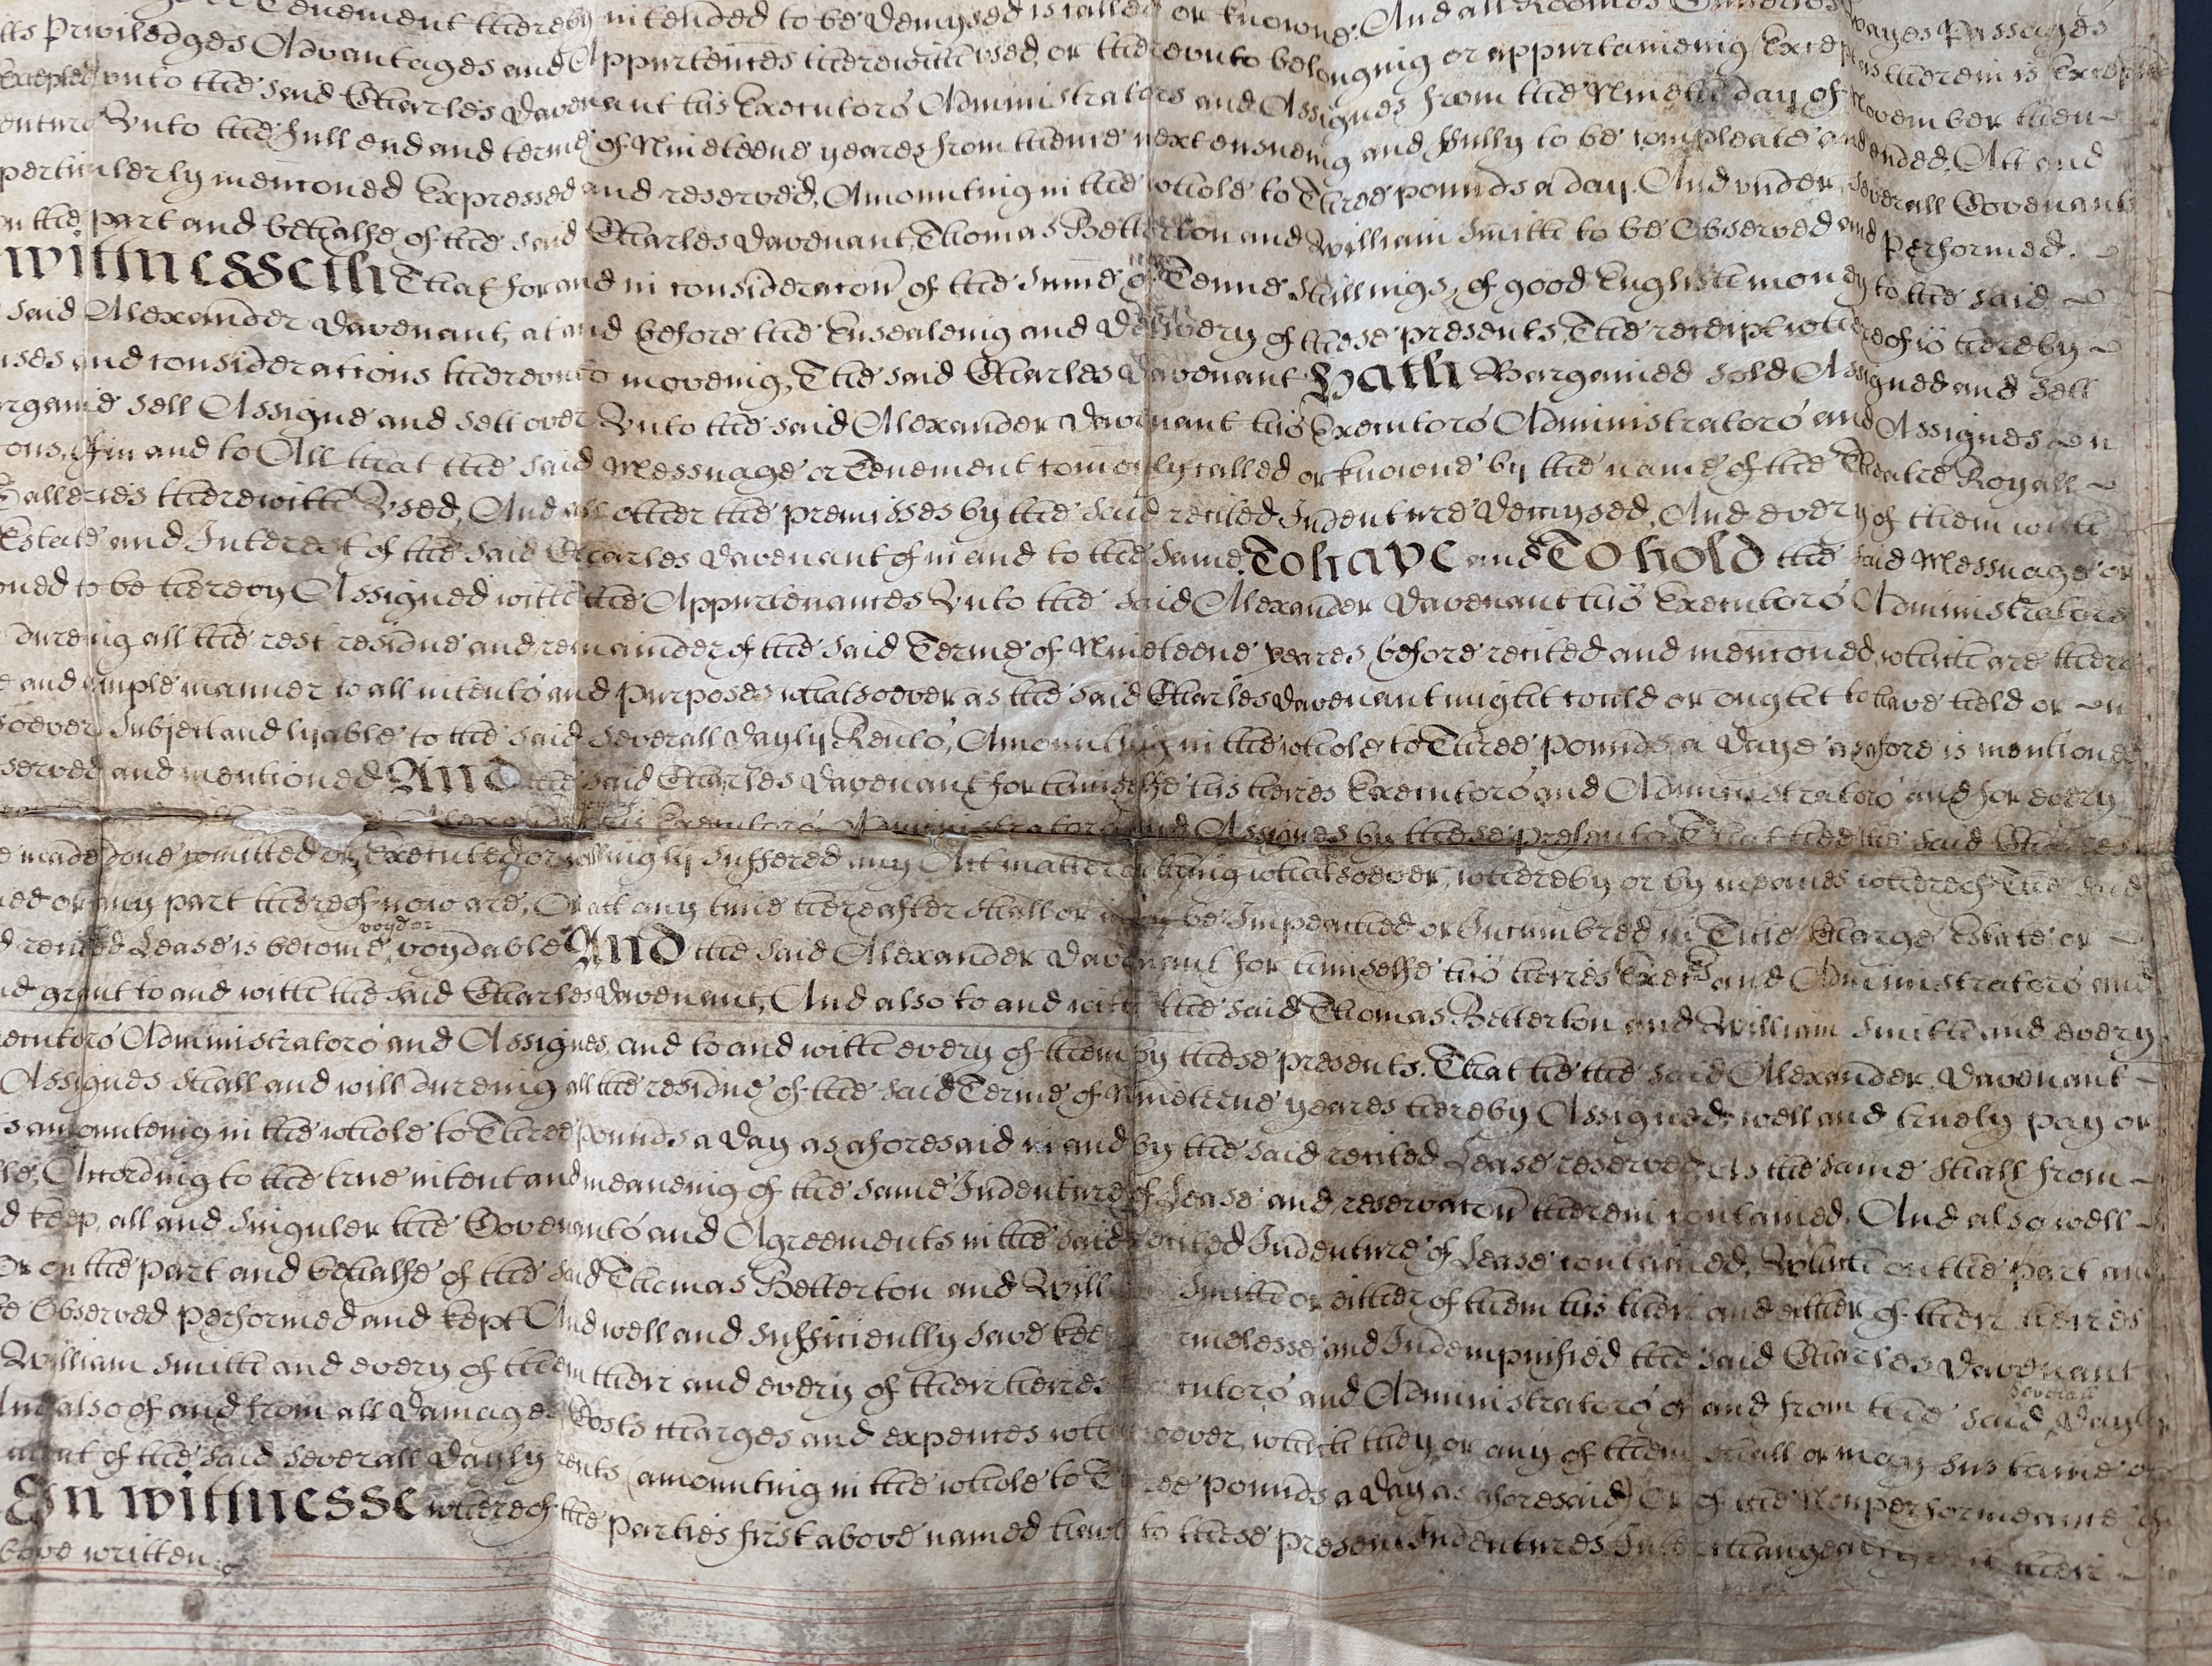 Tenement thereby intended to be demysed is called or knowne. And all Roomes Galleries
Priviledges Advantages and Appurtences therewith used, or thereunto belonging or appurtaineing Except as therein is Excepted
Excepted unto the said Charles Davenant his Executors Administrators and Assignes from the Nineth day of November then
Unto the full end and terme of Nineteene yeares from thence next ensueing and fully to be compleate and ended, Att and
perticulerly menconed Expressed and reserved, Amounting in the whole to Three pounds a day. And under severall Covenants
on the part and behalfe of the said Charles Davenant, Thomas Betterton and William Smith to be Observed and performed.
Witnesseth That for and in consideracon of the summe of Tenne Shillings of good English money to the said
said Alexander Davenant, at and before the Ensealeing and Delivery of these presents, The receipt whereof is hereby
and considerations thereunto moveing, The said Charles Davenant Hath Bargained sold Assigned and sett
sell Assigne and sett over Unto the said Alexander Davenant his Executors Administrators and Assignes
of in and to All that the said Messuage or Tenement comonly called or knowne by the name of the Theatre Royall
Galleries therewith Used, And all other the premisses by the said recited Indenture demysed, And every of them with
Estate and Interest of the said Charles Davenant of in and to the same, To have and To hold the said Messuage or
to be hereby Assigned with the Appurtenances Unto the said Alexander Davenant his Executors Administrators
dureing all the rest residue and remainder of the said Terme of Nineteene yeares before recited and menconed, which are there
and ample manner to all intents and purposes whatsoever as the said Charles Davenant might could or ought to have held or
Subject and lyable to the said severall dayly Rents, Amounting in the whole to Three pounds a Daye as afore is mentioned
and mentioned And the said Charles Davenant for himselfe his heires Executors and Administrators and for every
Alexander Executors Administrators and Assignes by these presents That hee the said Charles
made done comitted or Executed or willingly suffered any Act matter or thing whatsoever, whereby or by meanes whereof The said
or any part thereof now are, Or att any time hereafter shall or may be Impeached or Incumbred in Title Charge Estate or
Lease is become voyd or voydable And the said Alexander Davenant for himselfe his heires Exers and Administrators and
grant to and with the said Charles Davenant, And also to and with the said Thomas Betterton and William Smith and every
Administrators and Assignes, and to and with every of them by these presents. That he the said Alexander Davenant
Assignes shall and will dureing all the residue of the said Terme of Nineteene yeares hereby Assigned, well and truely pay or
amounteing in the whole to Three pounds a day as aforesaid in and by the said recited Lease reserved, As the same shall from
According to the true intent and meaneing of the same Indenture of Lease and reservacon therein contained, And also well
keep, all and singuler the Covenants and Agreements in the said recited Indenture of Lease contained, Which on the part and
Or on the part and behalfe of the said Thomas Betterton and Will Smith or either of them his their and either of their heires
Observed performed and kept And well and sufficiently save kee rmelesse and Indempnified the said Charles Davenant
William Smith and every of them their and every of their heires cutors and Administrators of and from the said severall Dayly
also of and from all Damages Costs charges and expences wh soever, which they or any of them shall or may sustaine or
of the said severall dayly rents (amounting in the whole to Three pounds a day as aforesaid) Or of the Nonperformeance
In witnesse whereof the parties first above named have to these present Indentures Interchangeably their
above written.